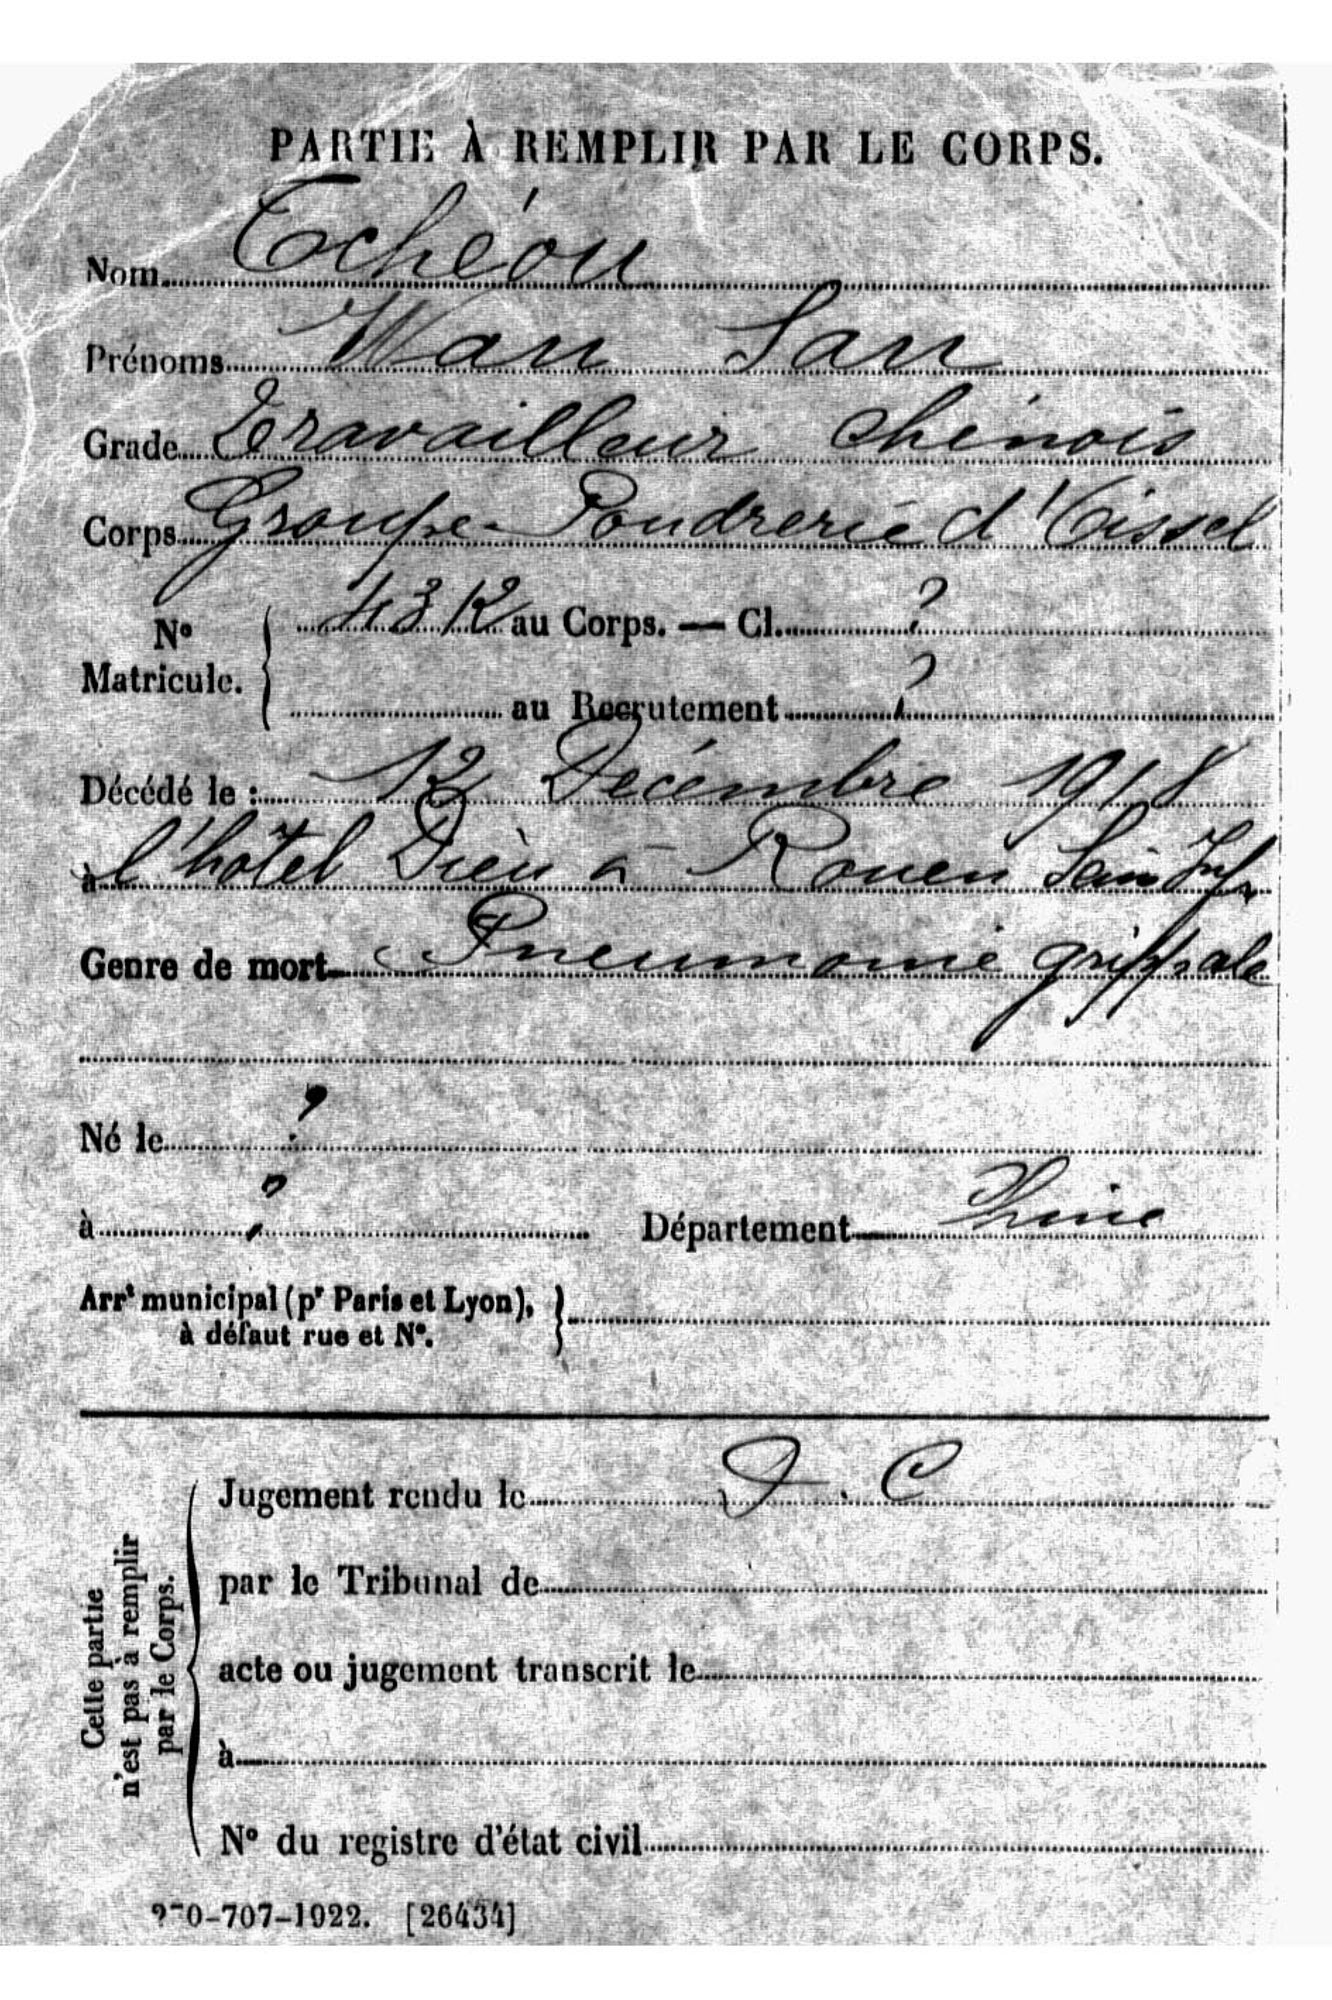 PARTIE À REMPLIR PAR LE CORPS.
Nom Tchéou
Prénoms Wan San
Grade Travailleur chinois
Corps Groupe Poudrerie d'Oissel
N° Matricule. 43 12 au Corps. — Cl. ?
au Recrutement ?
Décédé le : 12 Décembre 1918
à l'hôtel Dieu à Rouen Sein Infre
Genre de mort Pneumonie grippale
Né le ?
à ? Département Chine
Arrt municipal (pr Paris et Lyon),
à défaut rue et N°.
Cette partie
n'est pas à remplir
par le Corps.
Jugement rendu le
par le Tribunal de
acte ou jugement transcrit le
à
N° du registre d'état civil
0-707-1922. [26434]